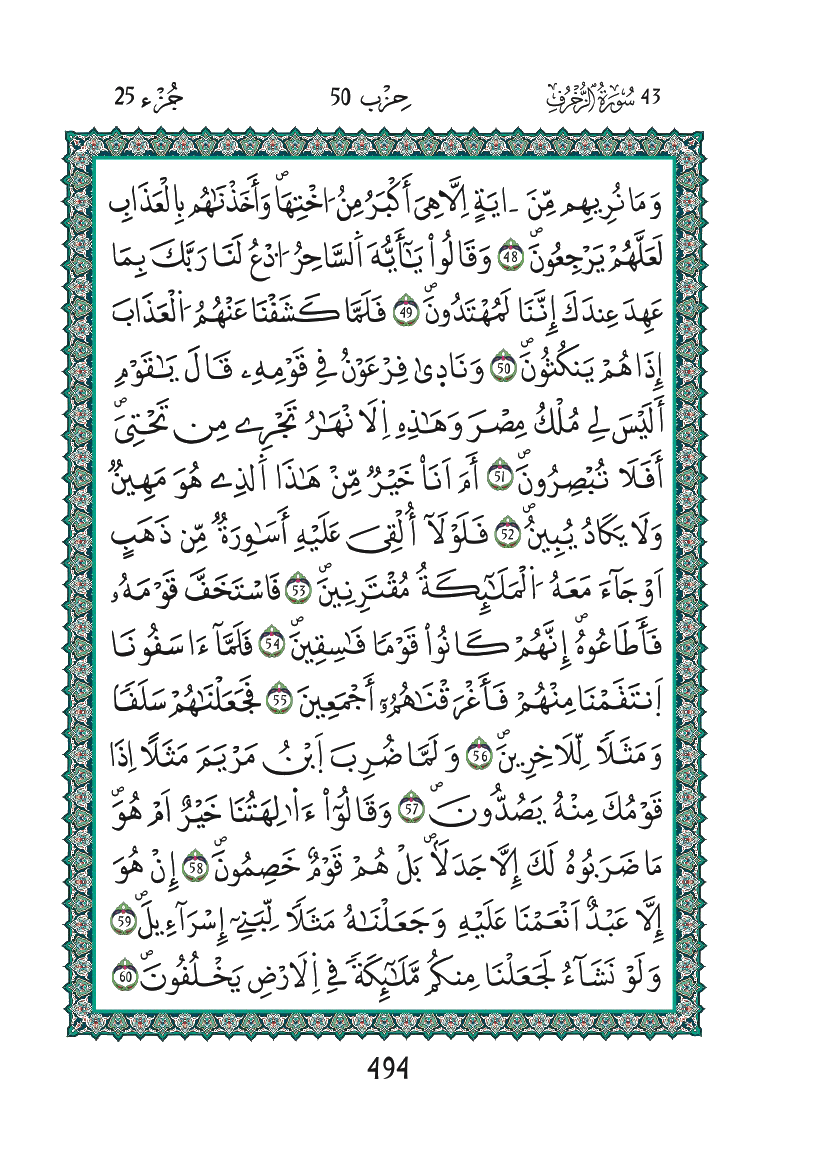 43 سُورَةُ الزُّخْرُفِ حِزْب 50 جُزْء 25
وَمَا نُرِيهِم مِّنَ ـايَةٍ اِلَّا هِيَ أَكْبَرُ مِنُ اخْتِهَاۖ وَأَخَذْنَٰهُم بِالْعَذَابِ
لَعَلَّهُمْ يَرْجِعُونَۖ 48 وَقَالُواْ يَٰٓأَيُّهَ اَ۬لسَّاحِرُ اُ۟دْعُ لَنَا رَبَّكَ بِمَا
عَهِدَ عِندَكَ إِنَّنَا لَمُهْتَدُونَۖ 49 فَلَمَّا كَشَفْنَا عَنْهُمُ اُ۬لْعَذَابَ
إِذَا هُمْ يَنكُثُونَۖ 50 وَنَادىٰ فِرْعَوْنُ فِے قَوْمِهِۦ قَالَ يَٰقَوْمِ
أَلَيْسَ لِے مُلْكُ مِصْرَ وَهَٰذِهِ اِ۬لَانْهَٰرُ تَجْرِے مِن تَحْتِيَۖ
أَفَلَا تُبْصِرُونَۖ 51 أَمَ اَنَا خَيْرٞ مِّنْ هَٰذَا اَ۬لذِے هُوَ مَهِينٞ
وَلَا يَكَادُ يُبِينُۖ 52 فَلَوْلَآ أُلْقِيَ عَلَيْهِ أَسَٰوِرَةٞ مِّن ذَهَبٍ
اَوْ جَآءَ مَعَهُ اُ۬لْمَلَٰٓئِكَةُ مُقْتَرِنِينَۖ 53 فَاسْتَخَفَّ قَوْمَهُۥ
فَأَطَاعُوهُۖ إِنَّهُمْ كَانُواْ قَوْماٗ فَٰسِقِينَۖ 54 فَلَمَّآ ءَاسَفُونَا
اَ۪نتَقَمْنَا مِنْهُمْ فَأَغْرَقْنَٰهُمُۥٓ أَجْمَعِينَ 55 فَجَعَلْنَٰهُمْ سَلَفاٗ
وَمَثَلاٗ لِّلَاخِرِينَۖ 56 وَلَمَّا ضُرِبَ اَ۪بْنُ مَرْيَمَ مَثَلاً اِذَا
قَوْمُكَ مِنْهُ يَصُدُّونَۖ 57 وَقَالُوٓاْ ءَا۬لِهَتُنَا خَيْرٌ اَمْ هُوَۖ
مَا ضَرَبُوهُ لَكَ إِلَّا جَدَلاَۢۖ بَلْ هُمْ قَوْمٌ خَصِمُونَۖ 58 إِنْ هُوَ
إِلَّا عَبْدٌ اَنْعَمْنَا عَلَيْهِ وَجَعَلْنَٰهُ مَثَلاٗ لِّبَنِےٓ إِسْرَآءِيلَۖ 59
وَلَوْ نَشَآءُ لَجَعَلْنَا مِنكُم مَّلَٰٓئِكَةٗ فِے اِ۬لَارْضِ يَخْلُفُونَۖ 60
494